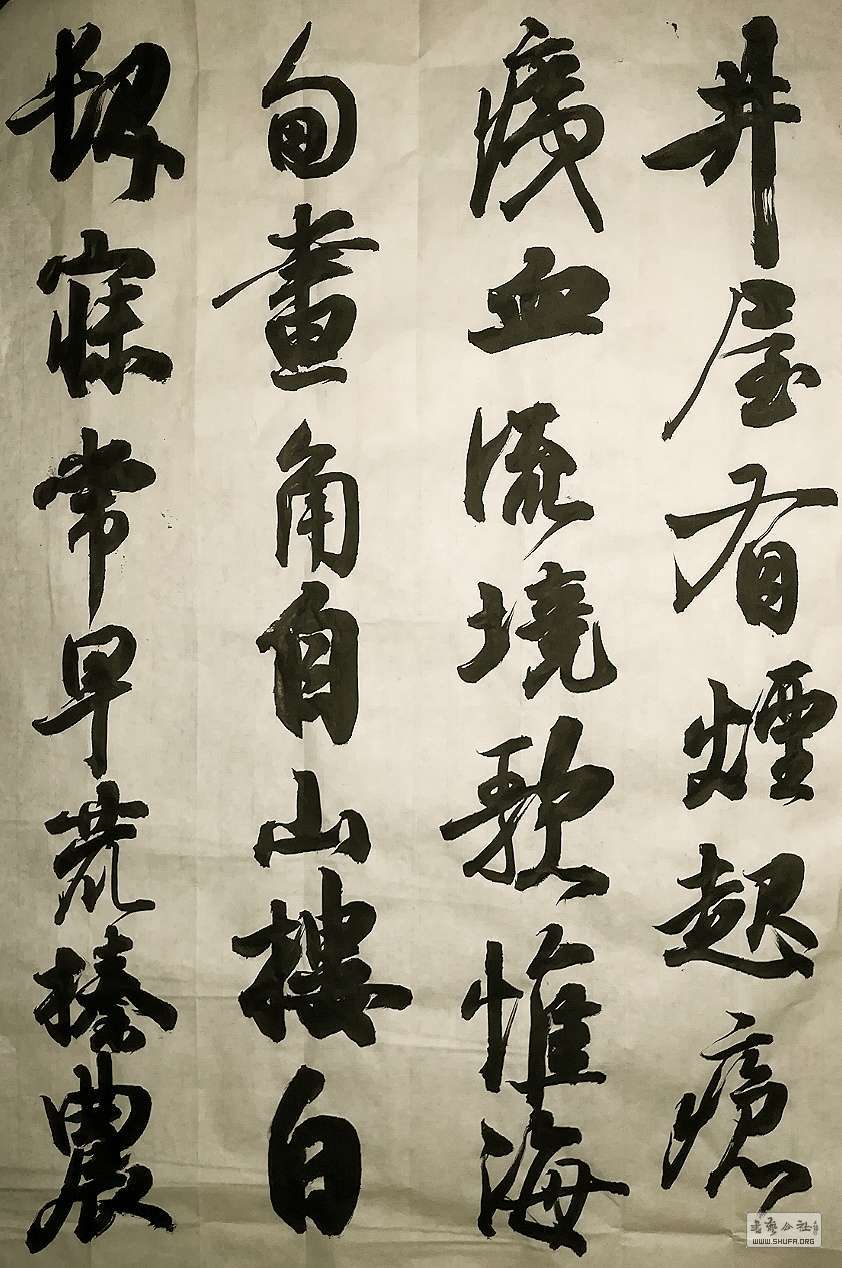 井屋有煙起瘡
痍血流境歌惟海
甸畫角自山樓白
髮寐常早荒榛農
书艺公社
WWW.SHUFA.ORG